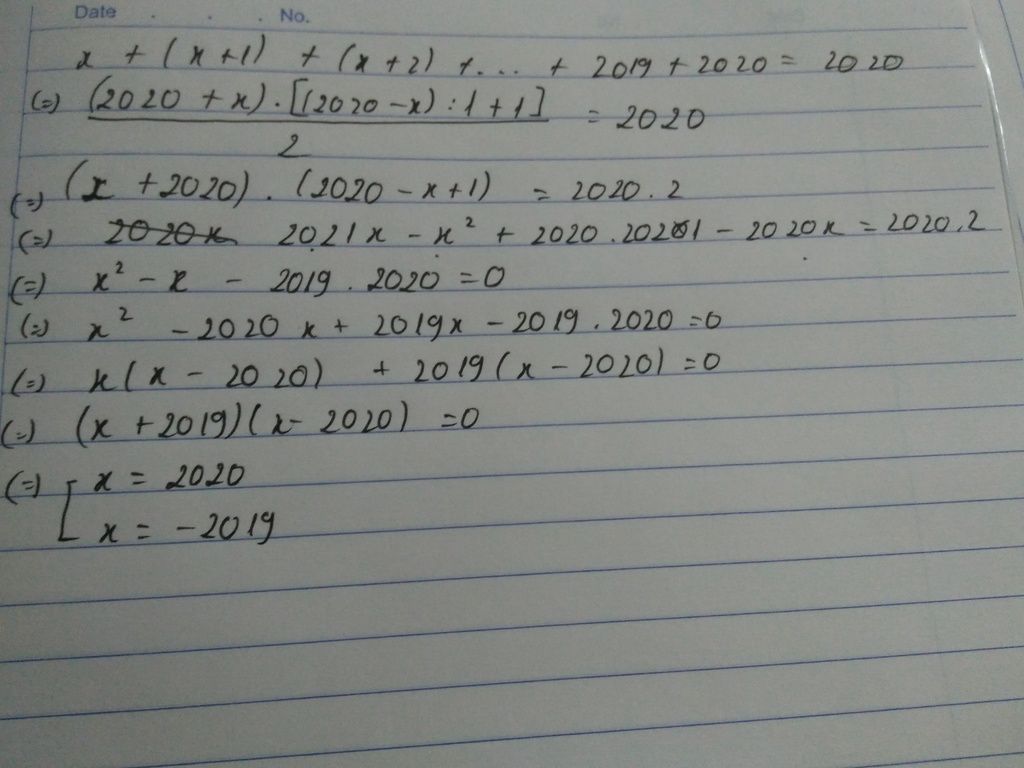 Date . . . No.
x + (x+1) + (x+2) +... + 2019 + 2020 = 2020
(=) (2020 + x) . [(2020 - x) : 1 + 1] / 2 = 2020
(=) (x + 2020) . (2020 - x + 1) = 2020 . 2
(=) 2020x 2021x - x² + 2020 . 2021 - 2020x = 2020.2
(=) x² - x - 2019 . 2020 = 0
(=) x² - 2020 x + 2019x - 2019 . 2020 = 0
(=) x(x - 2020) + 2019(x - 2020) = 0
(=) (x + 2019)(x - 2020) = 0
(=) [ x = 2020
x = -2019